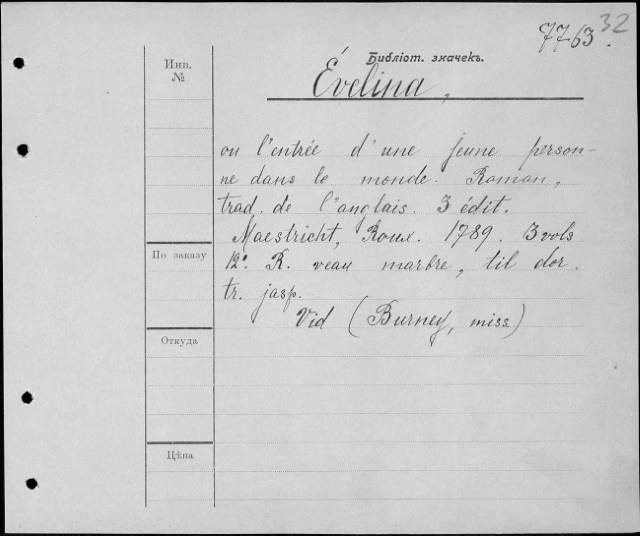 32
7763.
Инв.
№
Библіот. значекъ.
Évelina,
ou l'entrée d'une jeune person-
ne dans le monde. Roman,
trad. de l'anglais. 3 édit.
Maestricht, Roux. 1789. 3 vols
По заказу
12º. R. veau marbre, til dor.
tr. jasp.
Vid (Burney, miss)
Откуда
Цѣна